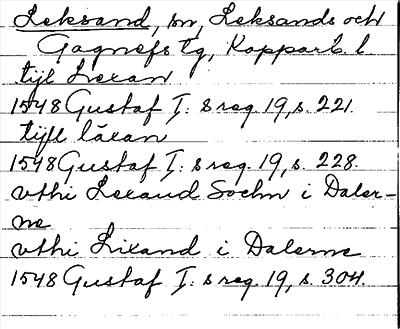 Leksand, sn, Leksands och
Gagnefs tg, Kopparb. l.
tijl Lexan
1548 Gustaf I:s reg. 19, s. 221.
tijll läxan
1548 Gustaf I:s reg. 19, s. 228.
vthi Lexand Sochn i Daler-
ne
vthi Lixand i Dalerne
1548 Gustaf I:s reg. 19, s. 304.